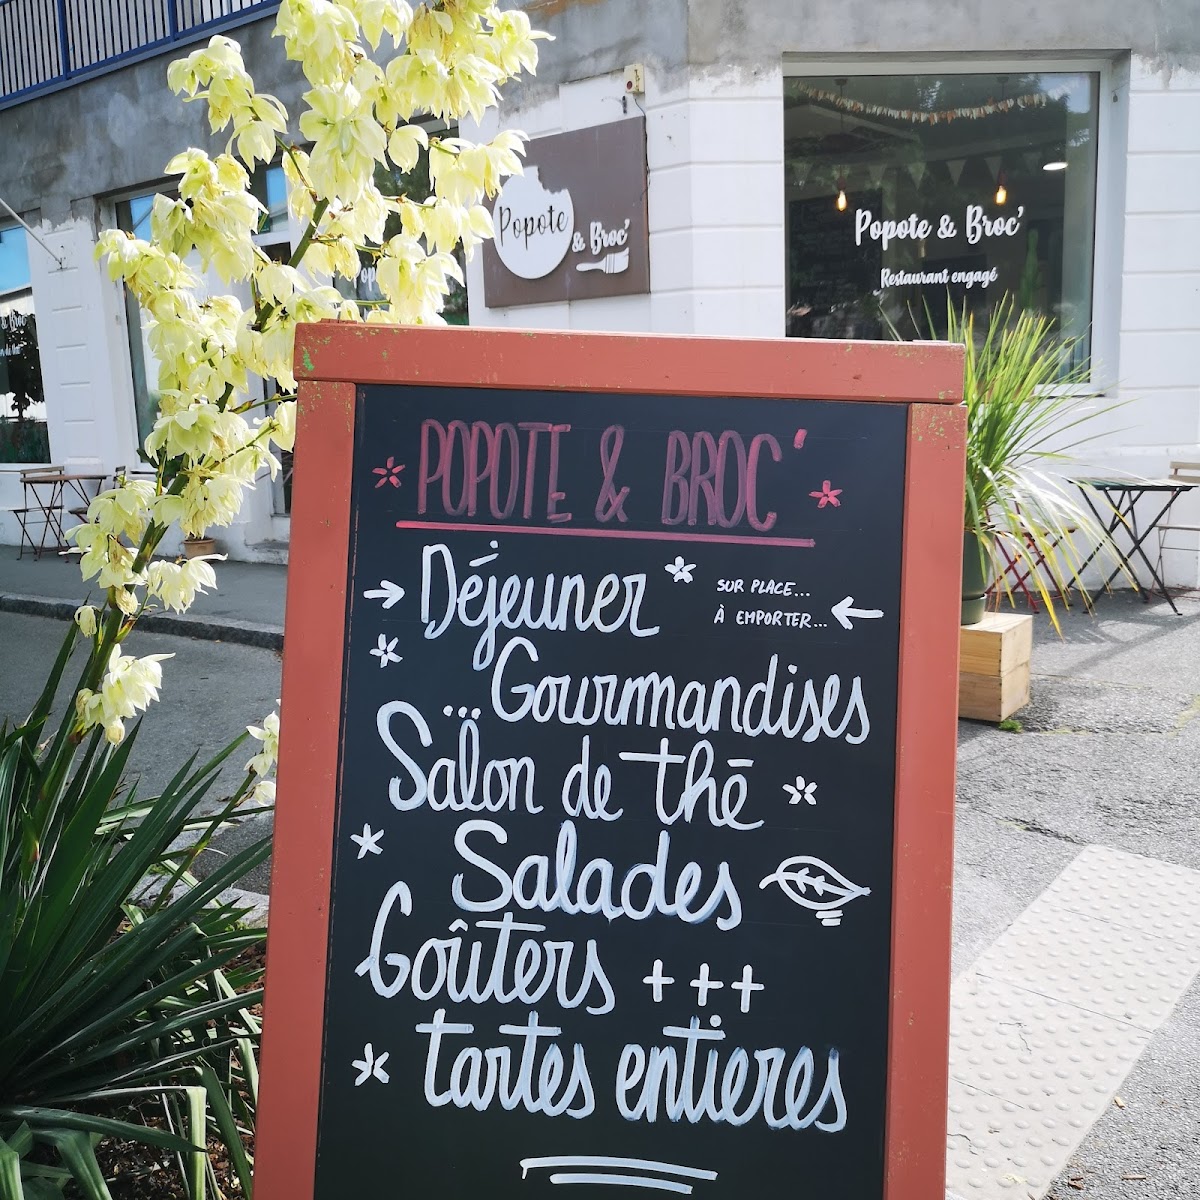 Popote
& Broc'
Popote & Broc'
Restaurant engagé
POPOTE & BROC'
Déjeuner
SUR PLACE...
À EMPORTER...
Gourmandises
...
Salon de thé
Salades
Goûters +++
tartes entières